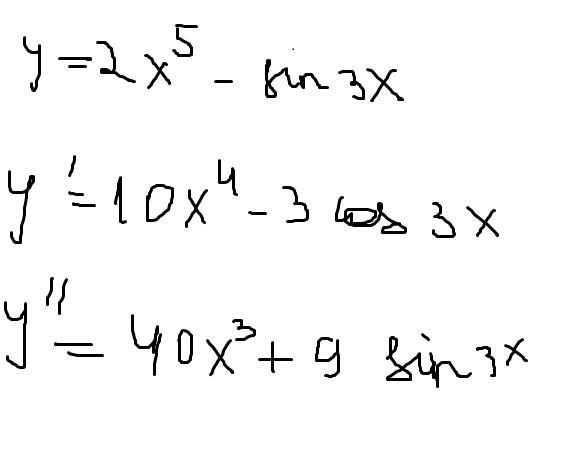 y = 2x⁵ - sin 3x
y' = 10x⁴ - 3 cos 3x
y'' = 40x³ + 9 sin 3x